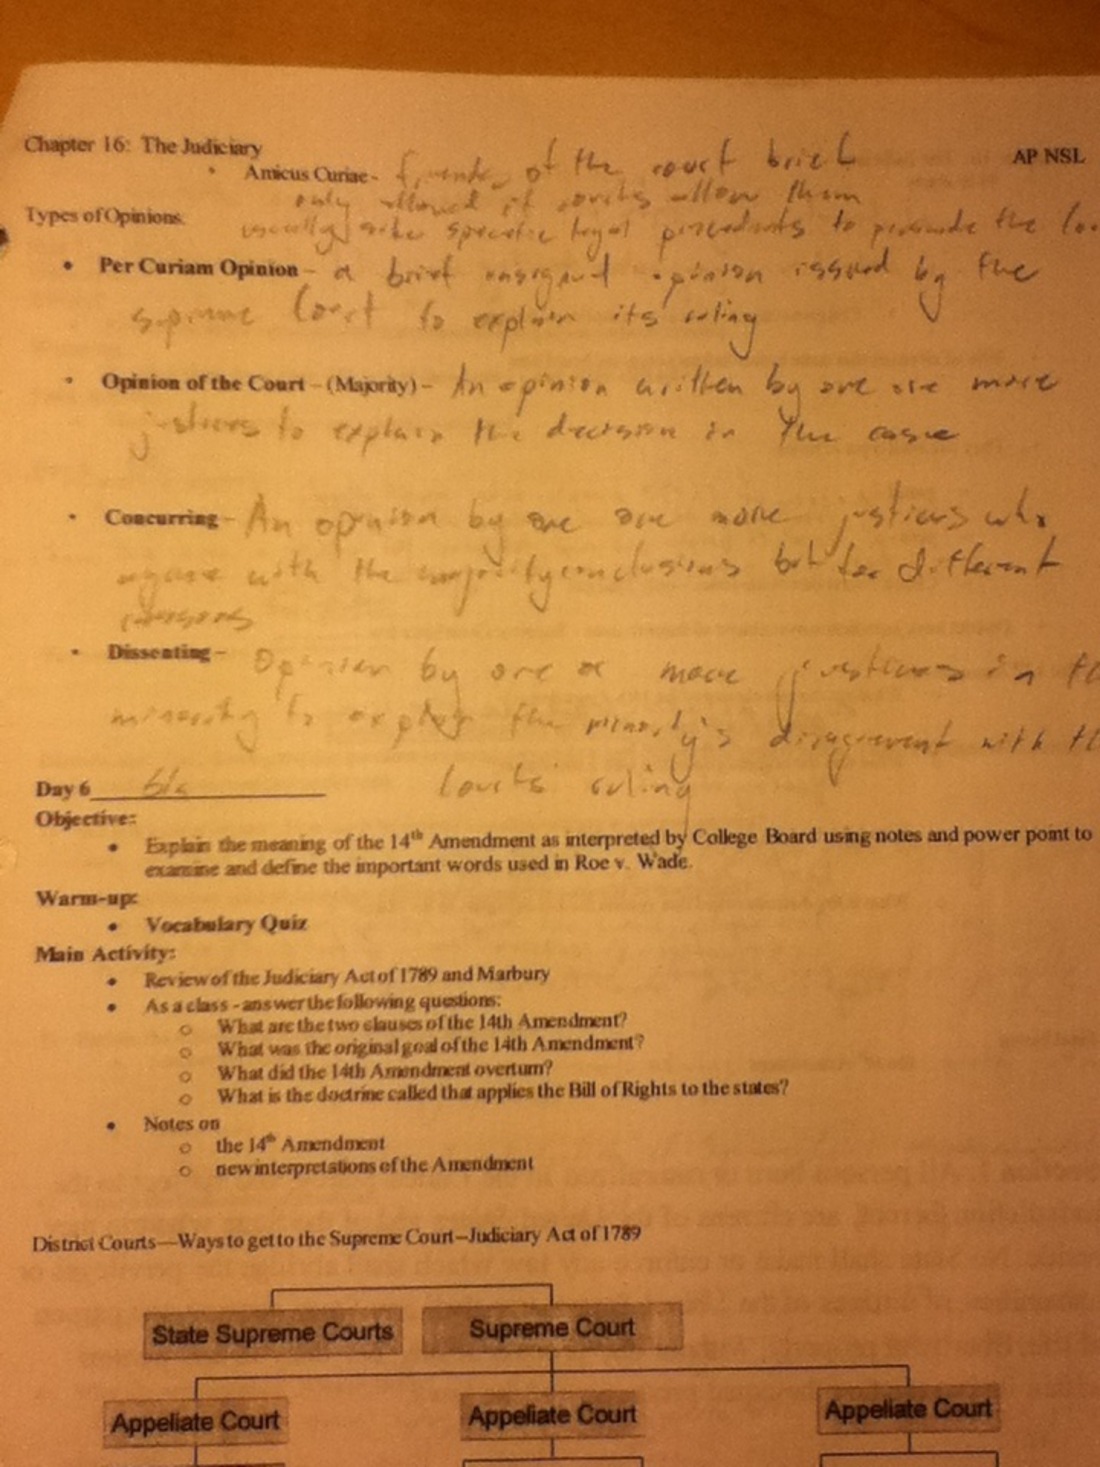 Chapter 16: The Judiciary
AP NSL
• Amicus Curiae - friends of the court brief
only allowed if courts allow them
Types of Opinions
usually cites specific legal precedents to persuade the
• Per Curiam Opinion - a brief unsigned opinion issued by the
supreme Court to explain its ruling
• Opinion of the Court - (Majority) - An opinion written by one ore more
justices to explain the decision in the casse
• Concurring - An opinion by one ore more justices who
agree with the majority conclusions but for different
reasons
• Dissenting - Opinion by one or more justices in
minority to explain the minority's disagreement with
courts' ruling
Day 6
Objective:
• Explain the meaning of the 14th Amendment as interpreted by College Board using notes and power point to
examine and define the important words used in Roe v. Wade.
Warm-up:
• Vocabulary Quiz
Main Activity:
• Review of the Judiciary Act of 1789 and Marbury
• As a class - answer the following questions:
o What are the two clauses of the 14th Amendment?
o What was the original goal of the 14th Amendment?
o What did the 14th Amendment overturn?
o What is the doctrine called that applies the Bill of Rights to the states?
• Notes on
o the 14th Amendment
o new interpretations of the Amendment
District Courts—Ways to get to the Supreme Court–Judiciary Act of 1789
State Supreme Courts
Supreme Court
Appellate Court
Appellate Court
Appellate Court